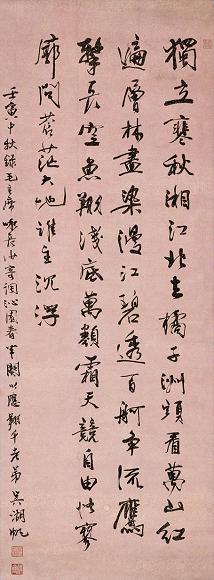 獨立寒秋湘江北去橘子洲頭看萬山紅
遍層林盡染漫江碧透百舸爭流鷹
擊長空魚翔淺底萬類霜天競自由悵寥
廓問蒼茫大地誰主沉浮
壬寅中秋錄毛主席詠長沙寄調沁園春半闋以應翔千老弟吳湖帆